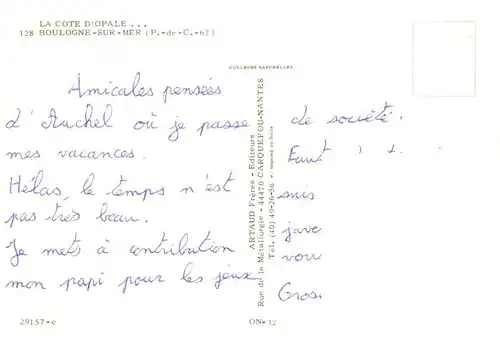 LA COTE D'OPALE ...
128 BOULOGNE-SUR-MER (P.-de-C.-62)
COULEURS NATURELLES
Amicales pensées
d'Auchel où je passe
mes vacances.
Hélas, le temps n'est
pas très beau.
Je mets à contribution
mon papi pour les jeux
de société.
suis
vou
Gros
ARTAUD Frères - Editeurs
Rue de la Métallurgie - 44470 CARQUEFOU-NANTES
Tél. (40) 49-26-56 -
29157-c
ON-32